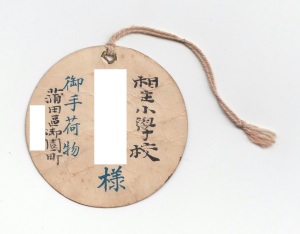 相生小學校
様
御手荷物
蒲田區御園町